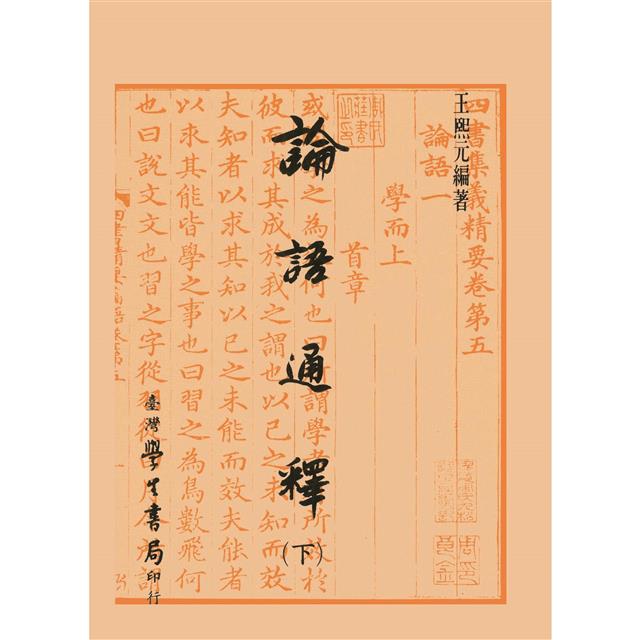 四書集義精要卷第五
王熙元編著
論語一
學而上
首章
論語通釋(下)
彼而求其成於我之謂也以己之未知而效
夫知者以求其知以己之未能而效夫能者
以求其能皆學之事也曰習之為鳥數飛何
也曰說文文也習之字從
臺灣學生書局印行